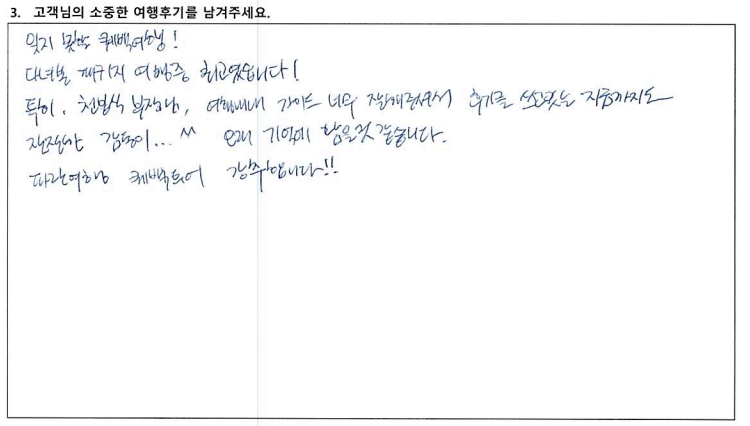 3. 고객님의 소중한 여행후기를 남겨주세요.
잊지 못할 퀘벡여행!
다녀본 패키지 여행중 최고였습니다!
특히, 천범식 부장님, 여행내내 가이드 너무 잘해주셔서 후기를 쓰고있는 지금까지도
잔잔한 감동이... ^^ 오래 기억에 남을것 같습니다.
파란여행 퀘벡투어 강추입니다!!